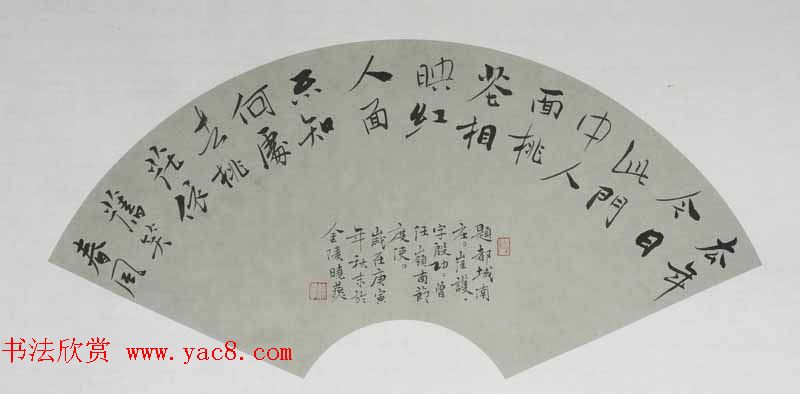 去年
今日
此門
中人
面桃
花相
映紅
人面
不知
何處
去桃
花依
舊笑
春風
題都城南
庄。崔護，
字殷功。曾
任嶺南節
度使。
歲在庚寅
年秋末於
金陵曉燕
书法欣赏 www.yac8.com